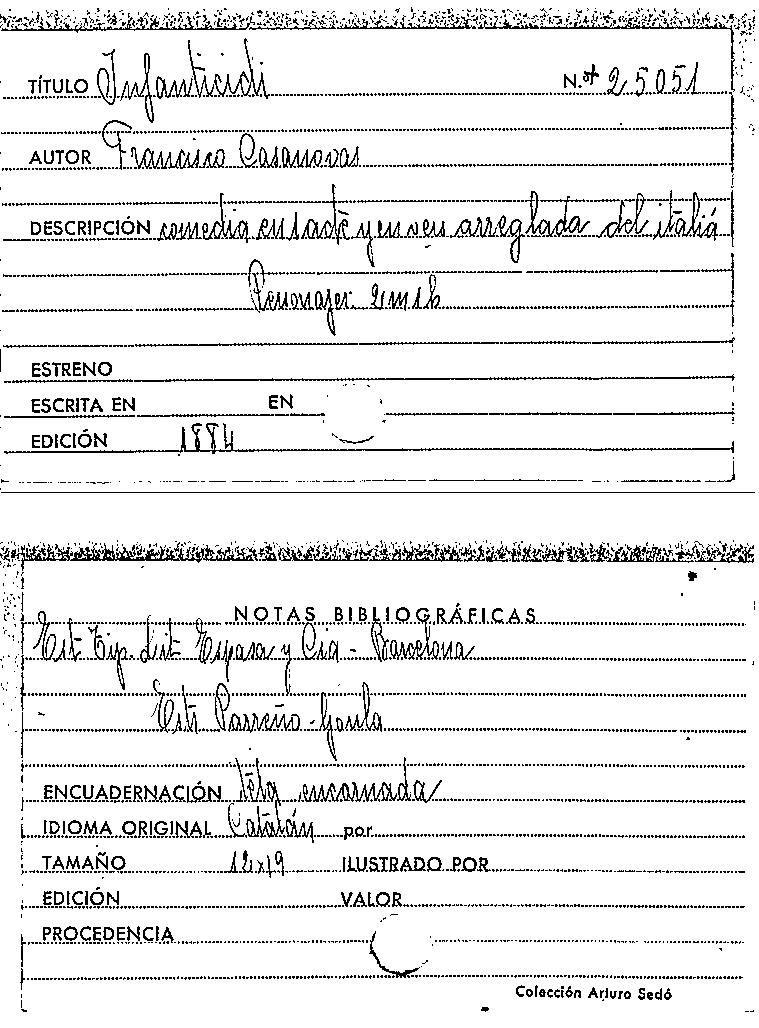 TÍTULO Infanticidi N.º 25051
AUTOR Francisco Casanovas
DESCRIPCIÓN comedia en 1 acte y en vers arreglada del italiá
Personajes 2 m 1 h
ESTRENO
ESCRITA EN EN
EDICIÓN 1884
NOTAS BIBLIOGRÁFICAS
Est Tip. Lit Espasa y Cia - Barcelona
Parreño - Gaula
ENCUADERNACIÓN tela encarnada
IDIOMA ORIGINAL Catalán por
TAMAÑO 12x19 ILUSTRADO POR
EDICIÓN VALOR
PROCEDENCIA
Colección Arturo Sedó